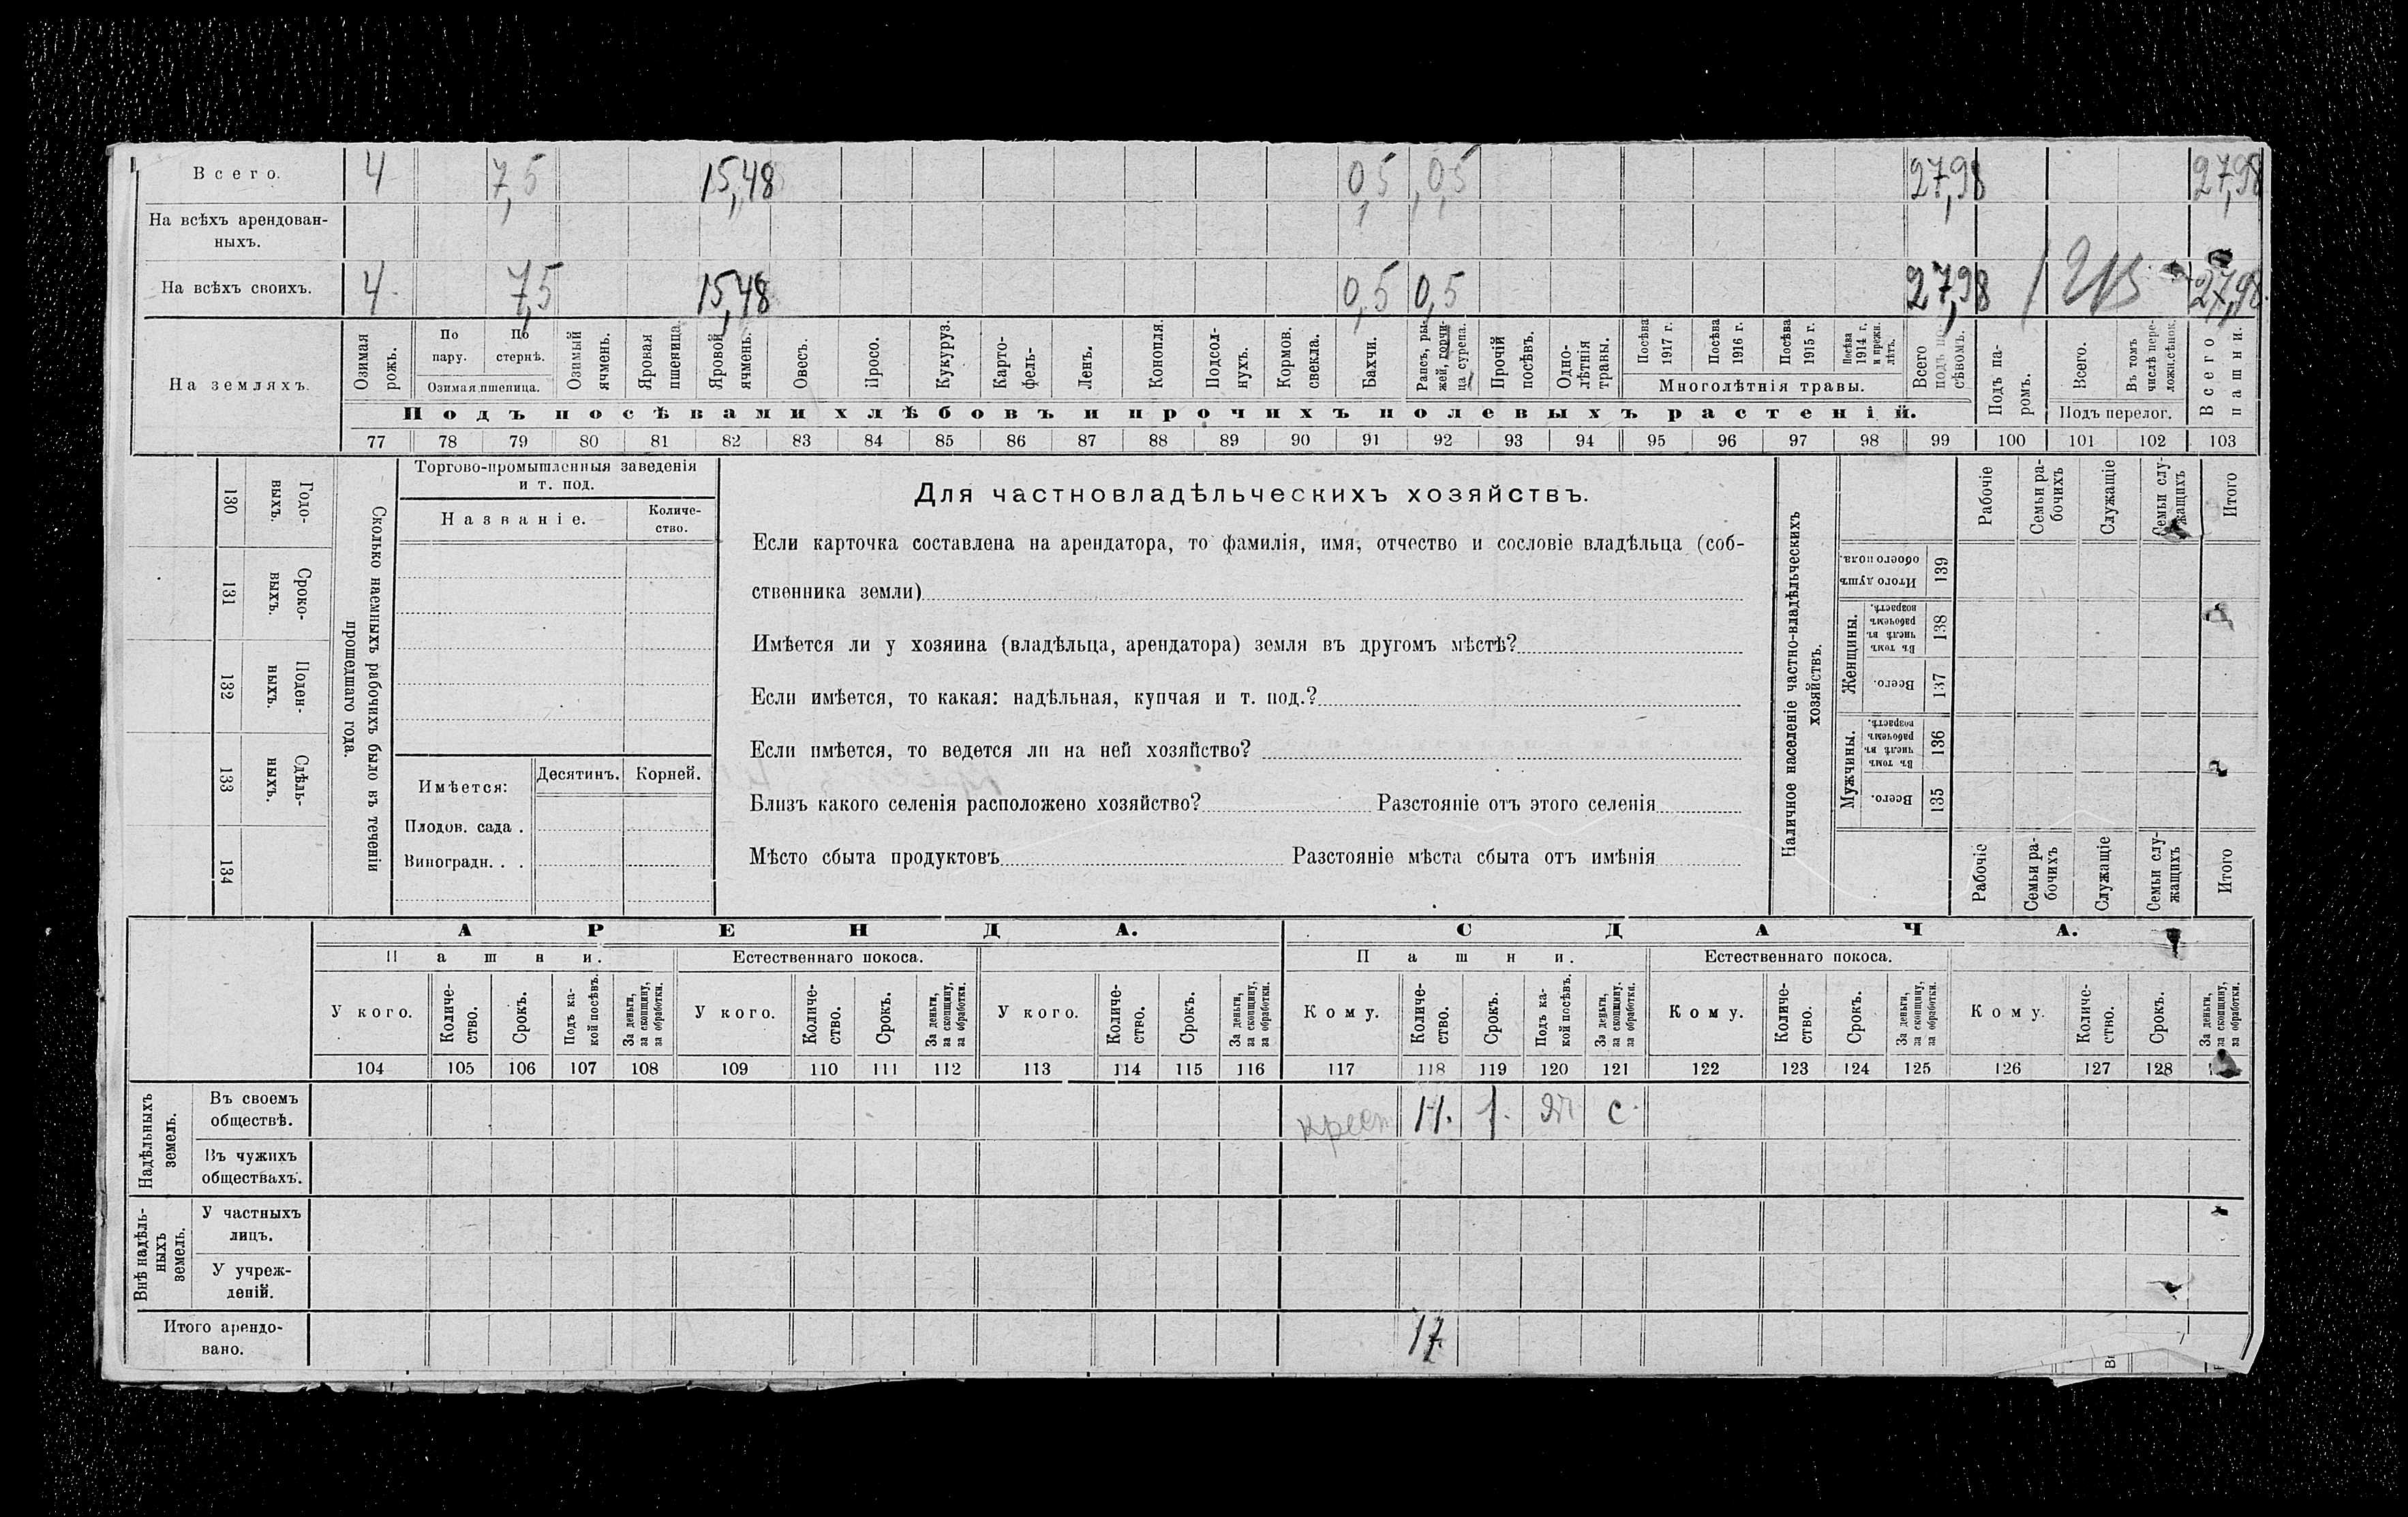 Всего. 4 7,5 15,48 0,5 0,5 27,98 27,98
На всѣхъ арендован-
ныхъ.
На всѣхъ своихъ. 4 7,5 15,48 0,5 0,5 27,98 27,98
На земляхъ.
Озимая рожь.
По пару.
По стернѣ.
Озимая пшеница.
Озимый ячмень.
Яровая пшеница.
Яровой ячмень.
Овесъ.
Просо.
Кукуруз.
Карто-
фель-
Ленъ.
Конопля.
Подсол-
нухъ.
Кормов. свекла.
Бахчи.
Рапсъ, ры-
жей, горчи-
ца сурепа.
Прочій посѣвъ.
Одно-
лѣтнія травы.
Посѣва 1917 г.
Посѣва 1916 г.
Посѣва 1915 г.
Посѣва 1914 г. и прежн. лѣтъ.
Многолѣтнія травы.
Всего подъ по-
сѣвомъ.
Подъ посѣвами хлѣбовъ и прочихъ полевыхъ растеній.
Подъ па-
ромъ.
Всего.
Въ томъ числѣ пере-
лож.сѣнок.
Подъ перелог.
Всего пашни.
77 78 79 80 81 82 83 84 85 86 87 88 89 90 91 92 93 94 95 96 97 98 99 100 101 102 103
130 Годо-
выхъ.
131 Сроко-
выхъ.
132 Поден-
ныхъ.
133 Сдѣль-
ныхъ.
134
Сколько наемныхъ рабочихъ было въ теченіи
прошедшаго года.
Торгово-промышленныя заведенія
и т. под.
Названіе.
Количе-
ство.
Имѣется: Десятинъ. Корней.
Плодов. сада .
Виноградн. . .
Для частновладѣльческихъ хозяйствъ.
Если карточка составлена на арендатора, то фамилія, имя, отчество и сословіе владѣльца (соб-
ственника земли)
Имѣется ли у хозяина (владѣльца, арендатора) земля въ другомъ мѣстѣ?
Если имѣется, то какая: надѣльная, купчая и т. под.?
Если имѣется, то ведется ли на ней хозяйство?
Близъ какого селенія расположено хозяйство? Разстояніе отъ этого селенія
Мѣсто сбыта продуктовъ Разстояніе мѣста сбыта отъ имѣнія
Наличное населеніе частно-владѣльческихъ
хозяйствъ.
Рабочіе
Семьи ра-
бочихъ
Служащіе
Семьи слу-
жащихъ
Итого
Итого душъ обоего пола. 139
Женщины.
Въ томъ числѣ въ рабочемъ возрастѣ. 138
Всего. 137
Мужчины.
Въ томъ числѣ въ рабочемъ возрастѣ. 136
Всего. 135
Рабочіе
Семьи ра-
бочихъ
Служащіе
Семьи слу-
жащихъ
Итого
АРЕНДА. СДАЧА.
Пашни. Естественнаго покоса. Пашни. Естественнаго покоса.
У кого.
Количе-
ство.
Срокъ.
Подъ ка-
кой посѣвъ.
За деньги, за скопщину, за обработки.
У кого.
Количе-
ство.
Срокъ.
За деньги, за скопщину, за обработки.
У кого.
Количе-
ство.
Срокъ.
За деньги, за скопщину, за обработки.
Кому.
Количе-
ство.
Срокъ.
Подъ ка-
кой посѣвъ.
За деньги, за скопщину, за обработки.
Кому.
Количе-
ство.
Срокъ.
За деньги, за скопщину, за обработки.
Кому.
Количе-
ство.
Срокъ.
За деньги, за скопщину, за обработки.
104 105 106 107 108 109 110 111 112 113 114 115 116 117 118 119 120 121 122 123 124 125 126 127 128
Надѣльныхъ
земель.
Въ своемъ
обществѣ. крест 1. с.
Въ чужихъ
обществахъ.
Внѣ надѣль-
ныхъ
земель.
У частныхъ
лицъ.
У учреж-
деній.
Итого арендо-
вано. 17